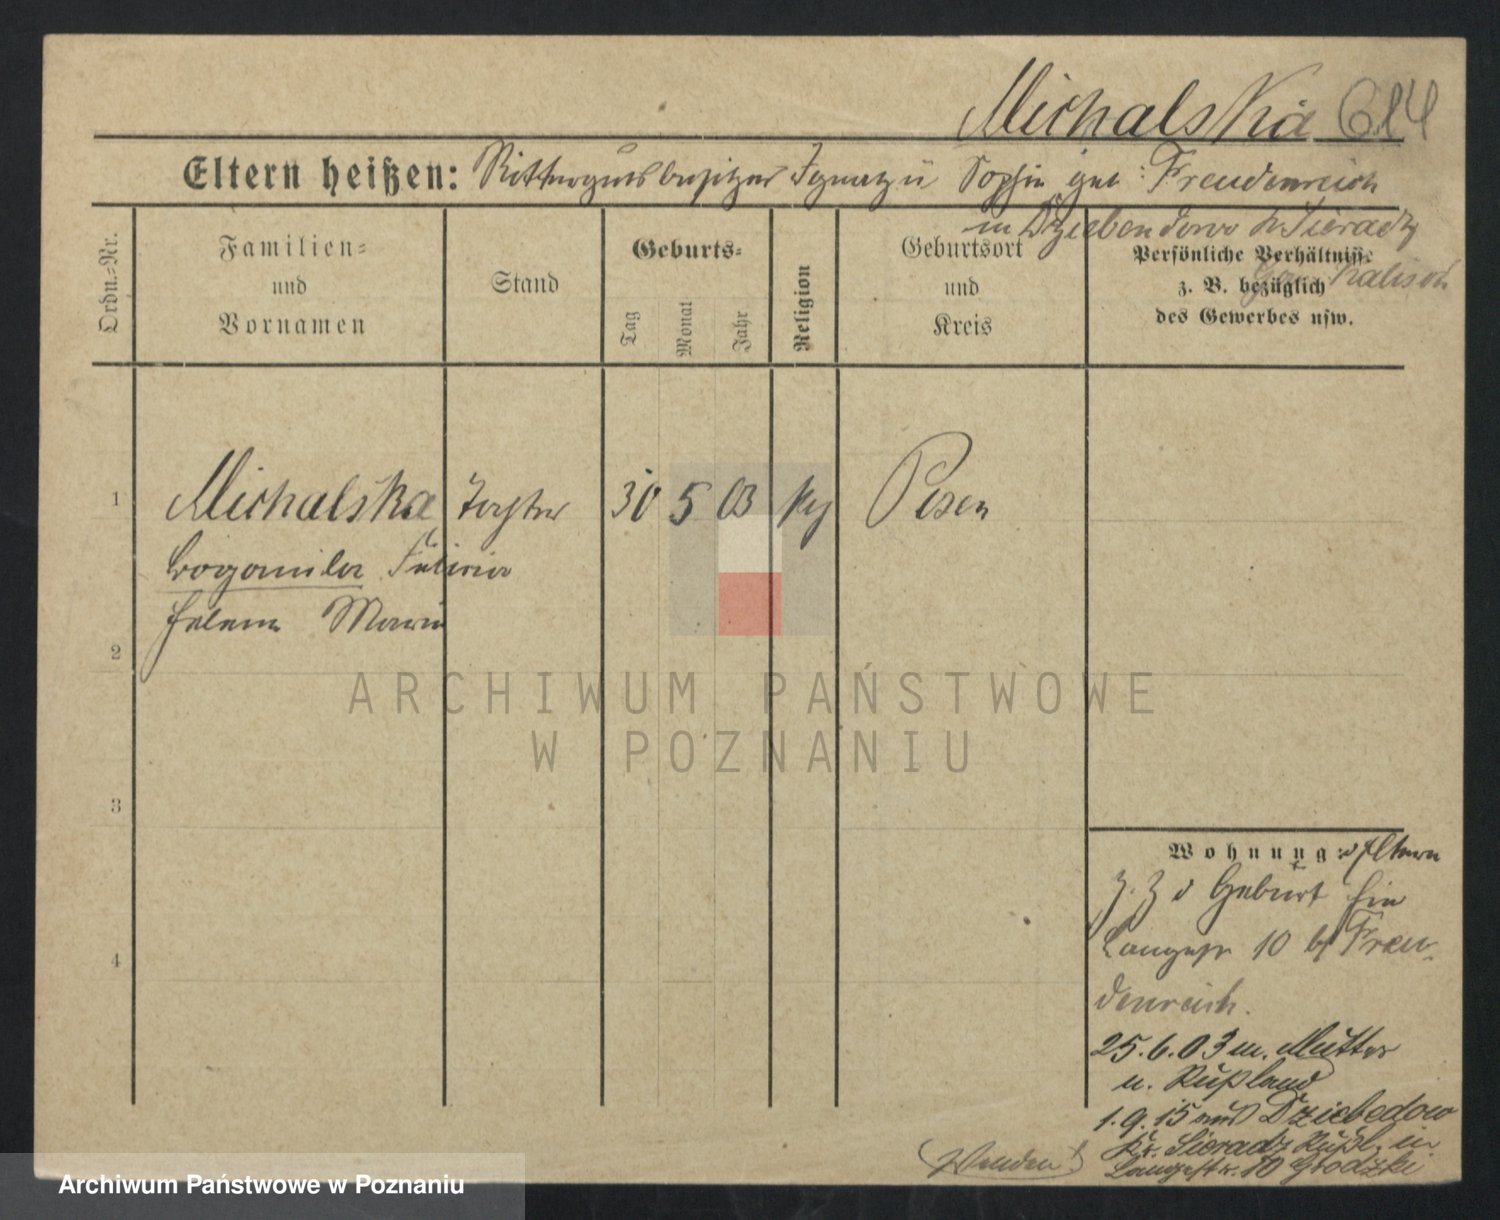 Michalska 614
Eltern heißen: Rittergutsbesitzer Ignatz u Sophie geb: Freudenreich
in Dziebendowo Kr Sieradz
Gouv Kalisch
Ordn.=Nr.
Familien=
und
Vornamen
Stand
Geburts=
Tag
Monat
Jahr
Religion
Geburtsort
und
Kreis
Persönliche Verhältnisse
z. B. bezüglich
des Gewerbes usw.
1
Michalska Tochter 30 5 03 Posen
Bogomila Felicia
Helene Maria
2
3
4
Wohnung: d Eltern
z. Z d Geburt hier
Langestr 10 bei Freu-
denreich.
25.6.03 m. Mutter
n. Rußland
1.9.15 aus Dziebedow
Kr. Sieradz Rußl. in
Langestr. 10 Grodzki
(Wenden!)
ARCHIWUM PAŃSTWOWE
W POZNANIU
Archiwum Państwowe w Poznaniu